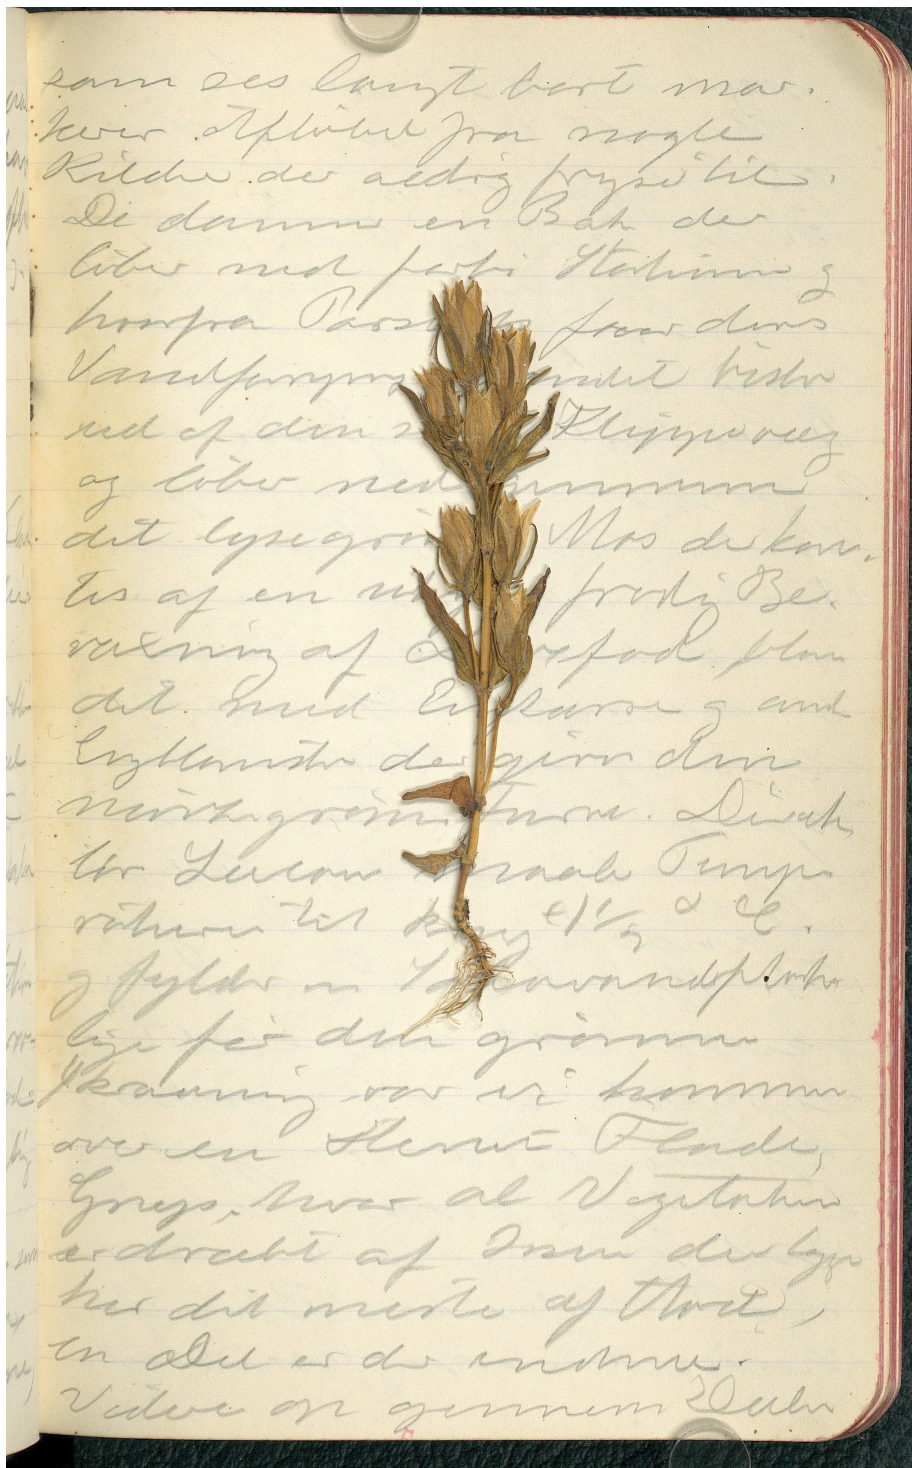 som ses langt bort mar-
kerer Afløbet fra nogle
Kilder der aldrig fryser til.
De danner en Bæk der
løber ned forbi Stationen og
hvorfra faar deres
Vandforsyning Vandet vister
ud af den Klippevæg
og løber ned gennem
det lysegrønne Mos der kan-
tes af en frodig Be-
voksning af blan
det med og and
der giver den
mørkegrønne Farve. Direk
tør maale Tempe
raturen til
og fylder en
lige før den grønne
Skraaning var vi kommen
over en Stenet Flade,
Gnejs, hvor al Vegetation
er dræbt af Isen der ligger
her det meste af Aaret,
en Del er der endnu.
Videre op gennem Dalen